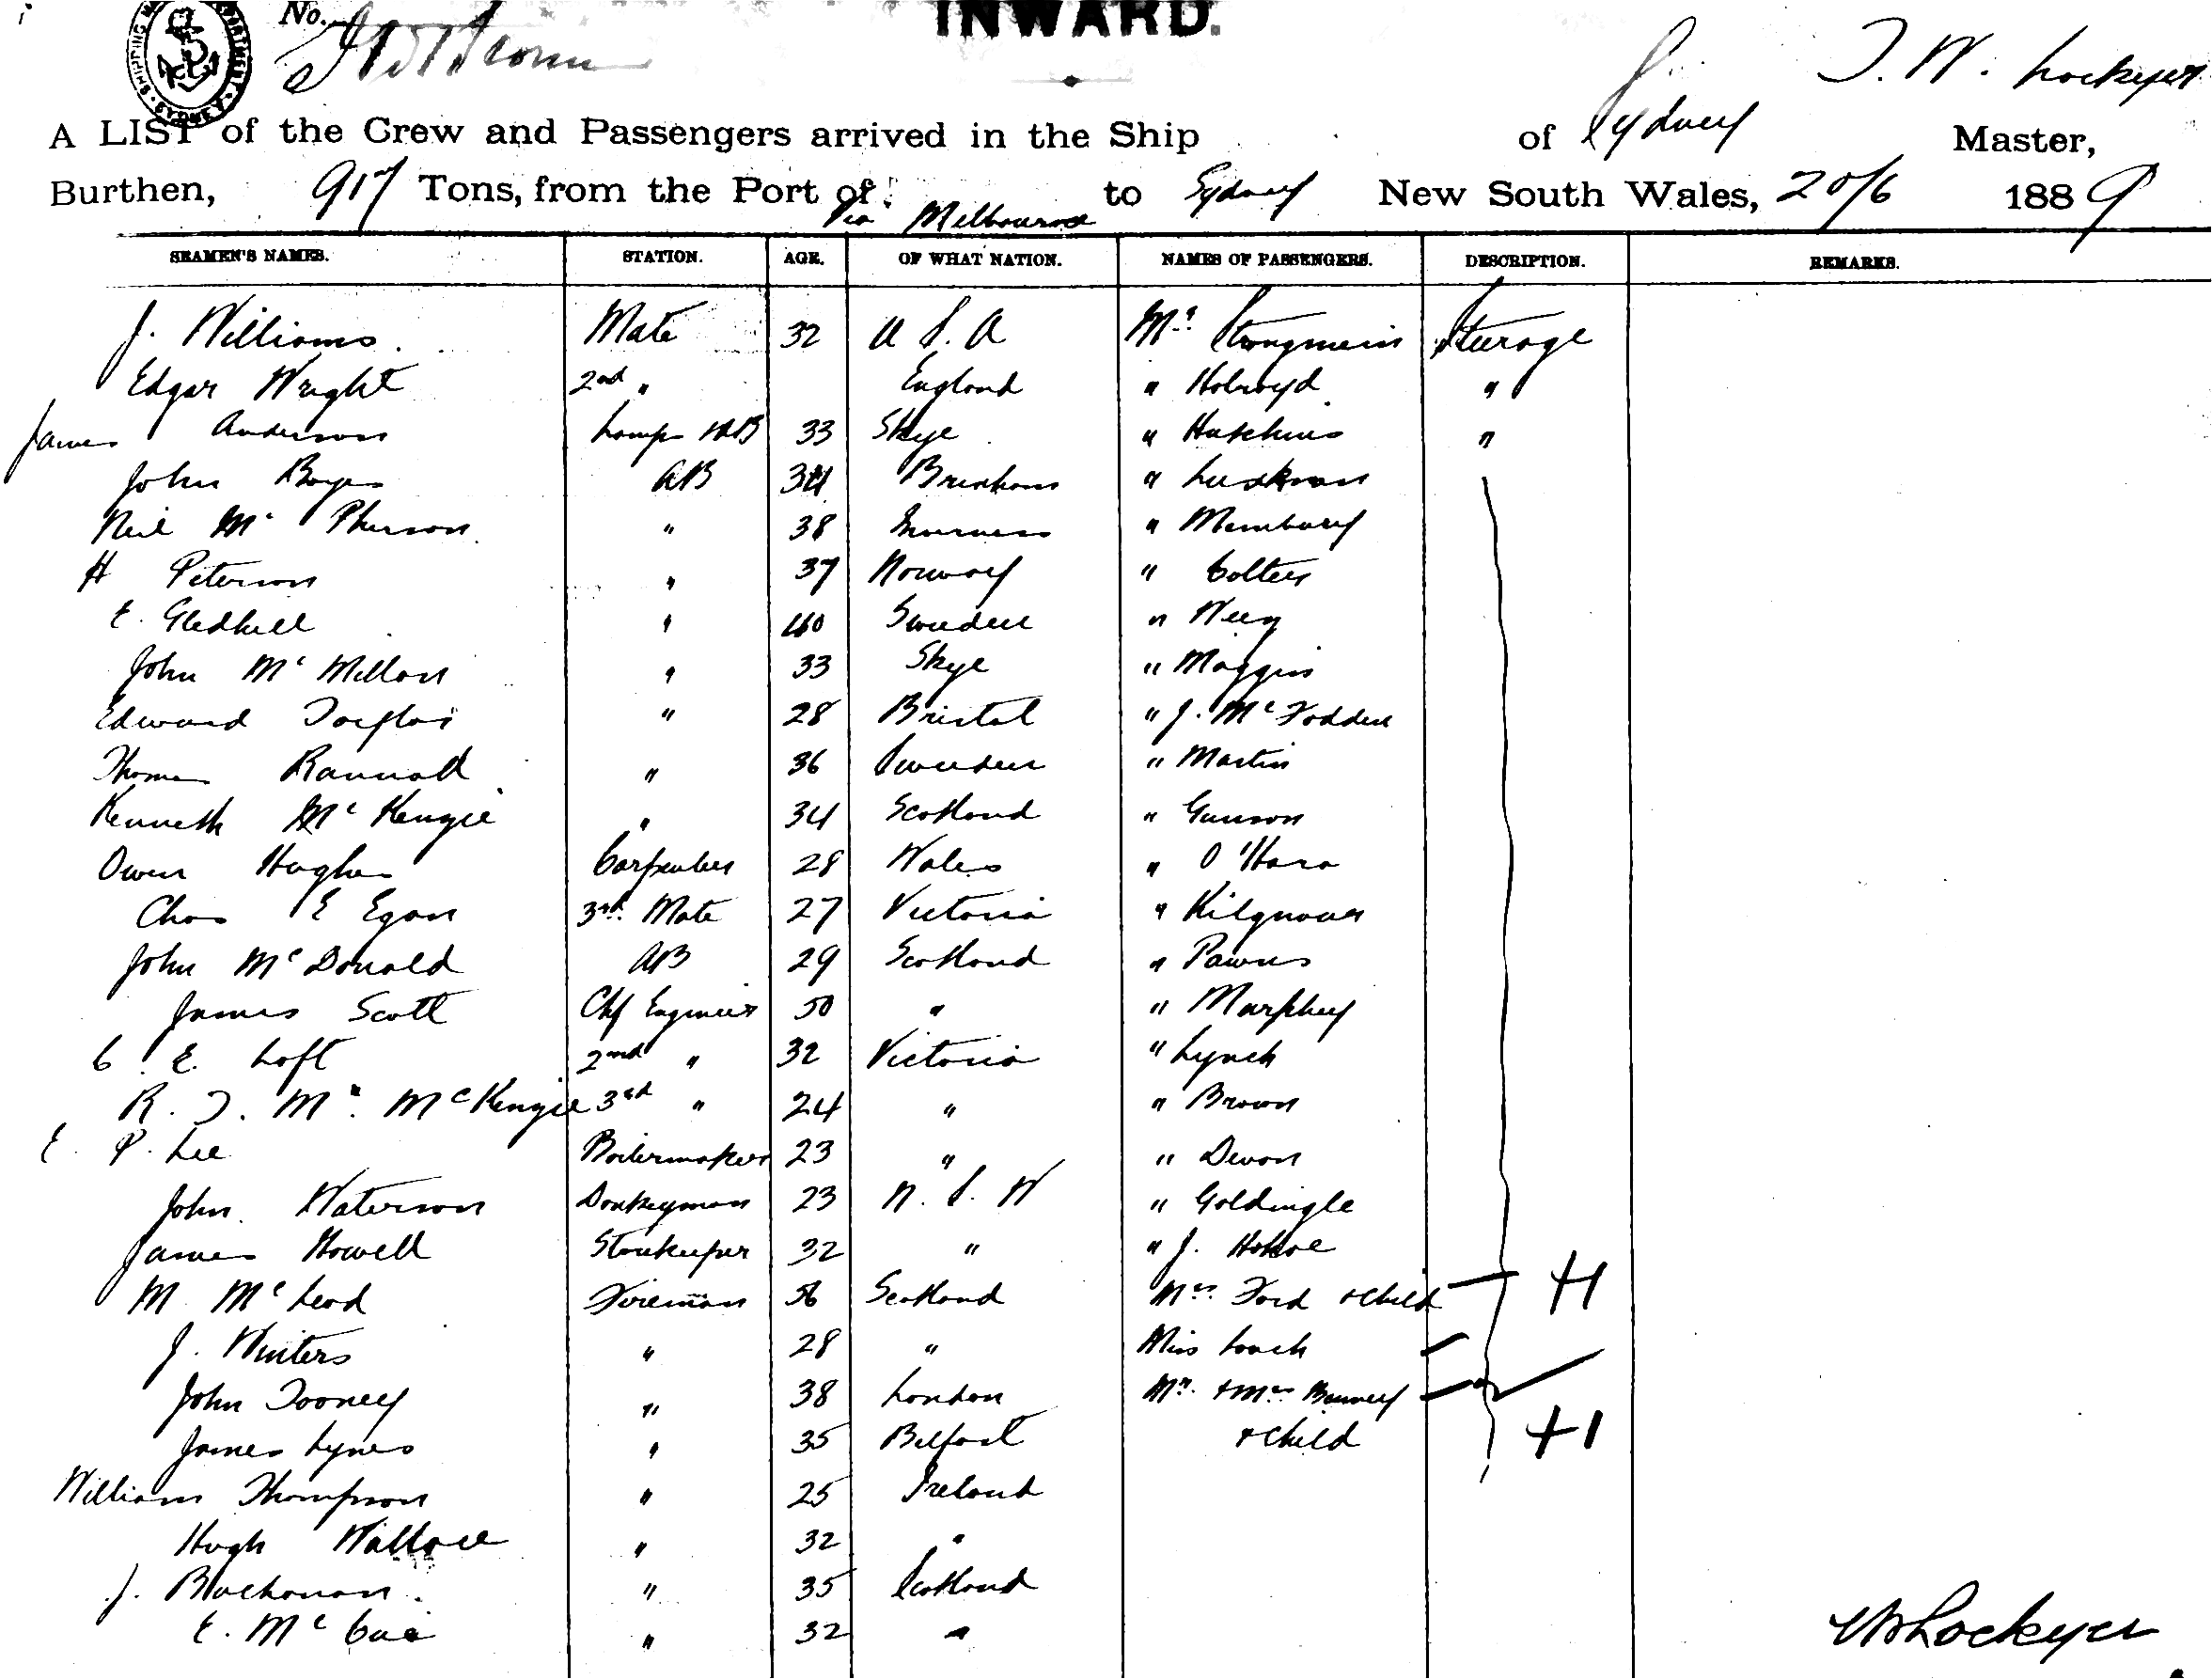 No. INWARD.
SHIPPING M DEPARTMENT SYDNEY
T. W. Lockyer
A LIST of the Crew and Passengers arrived in the Ship of Sydney Master,
Burthen, 917 Tons, from the Port of via Melbourne to Sydney New South Wales, 20/6 1889
SEAMEN'S NAMES. STATION. AGE. OF WHAT NATION. NAMES OF PASSENGERS. DESCRIPTION. REMARKS.
J. Williams Mate 32 U S. A Mr. Steerage
Edgar Wright 2nd " England " Holroyd "
James Anderson Lamps & AB 33 Skye " Hutchins "
John Boyes AB 34 Brixham "
Neil Mc Pherson " 38 Inverness " Membury
H Peterson " 37 Norway "
E. Gledhill " 40 Sweden "
John Mc Millan " 33 Skye " Maggin
Edward Douglas " 28 Bristol " J. McFadden
Thomas " 36 Sweden " Martin
Kenneth Mc Kenzie " 34 Scotland " Gunson
Owen Hughes Carpenter 28 Wales " O'Hara
Chas E Egan 3rd Mate 27 Victoria "
John McDonald AB 29 Scotland "
James Scott Chf Engineer 50 " " Murphey
C. E. Loft 2nd " 32 Victoria " Lynch
R. J. M. McKenzie 3rd " 24 " " Brown
E. P. Lee Boilermaker 23 " " Devon
John Waterson Donkeyman 23 N. S. W " Goldingle
James Howell Storekeeper 32 " " J.
M McLeod Fireman 56 Scotland Mrs. Ford & Child +1
J. Winters " 28 " Miss
John Tooney " 38 London Mr. & Mrs
James Lynes " 35 Belfast & Child +1
William Thompson " 25 Ireland
Hugh Wallace " 32 "
J. Buchanan " 35 Scotland
E. Mc " 32 "
Lockyer